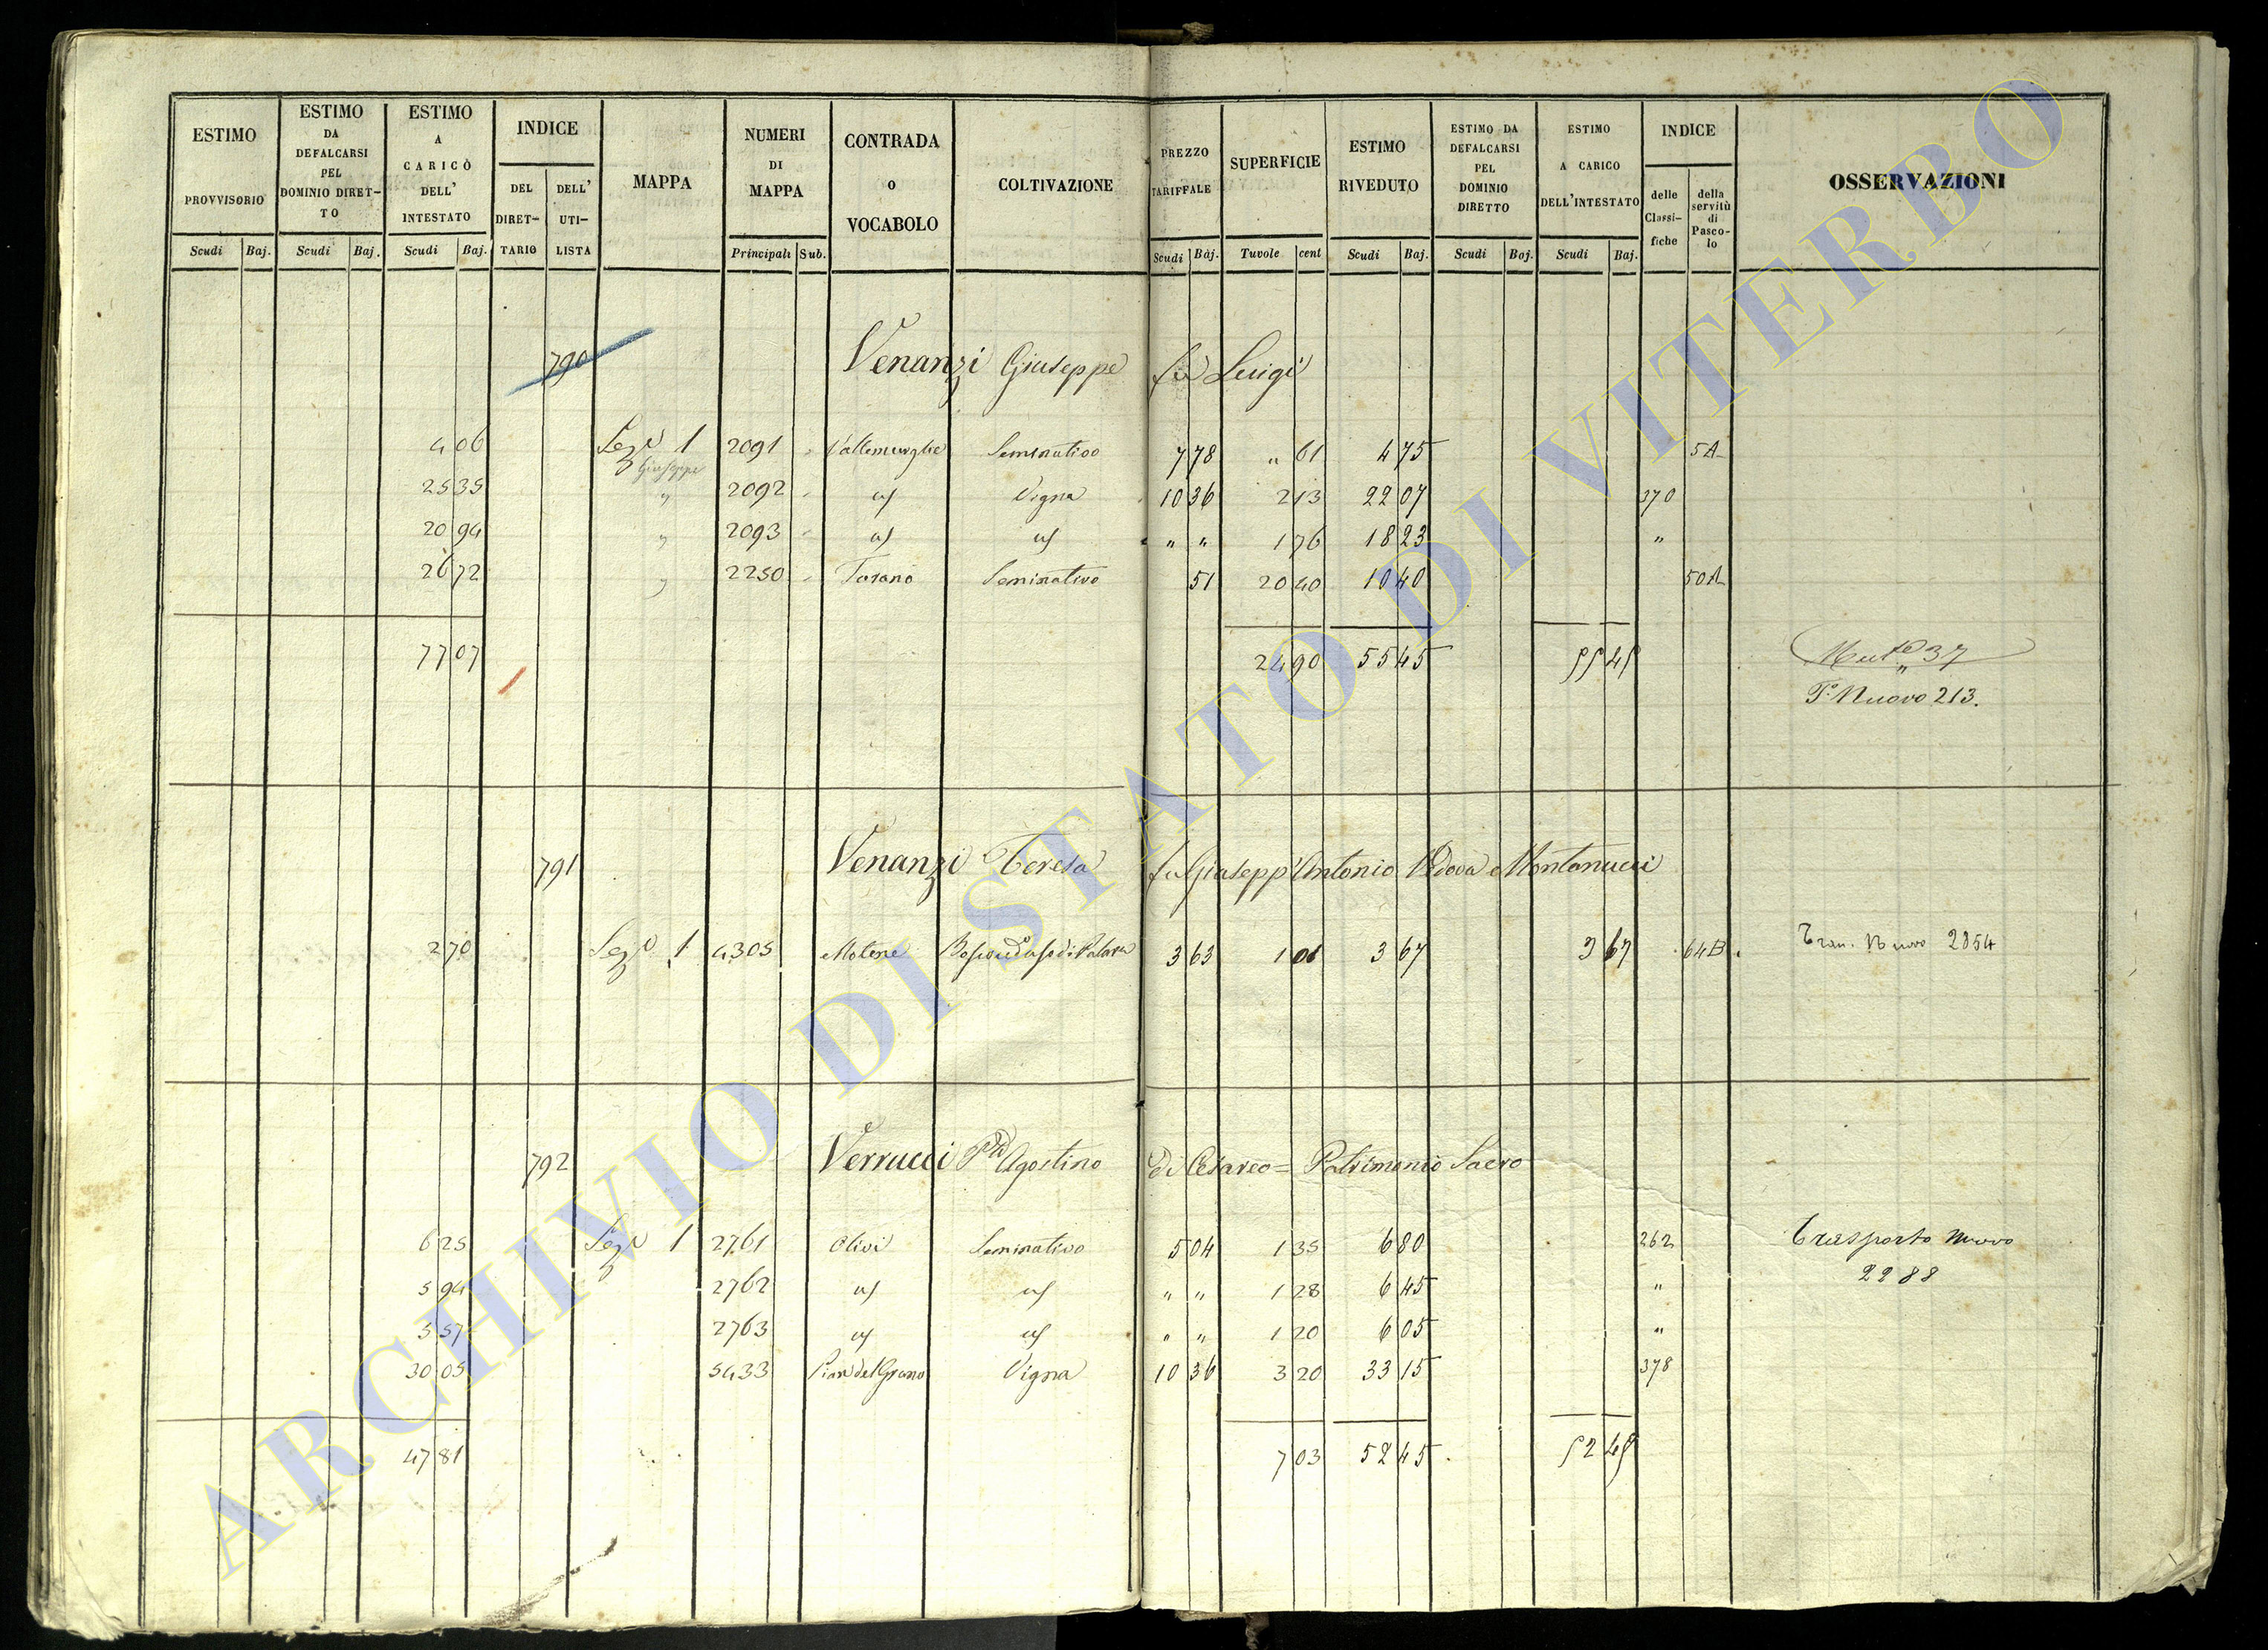 ESTIMO PROVVISORIO Scudi Baj.
ESTIMO DA DEFALCARSI PEL DOMINIO DIRET- TO Scudi Baj.
ESTIMO A CARICÒ DELL' INTESTATO Scudi Baj.
INDICE DEL DIRET- TARIO DELL' UTI- LISTA
MAPPA
NUMERI DI MAPPA Principali Sub.
CONTRADA O VOCABOLO
COLTIVAZIONE
PREZZO TARIFFALE Scudi Baj.
SUPERFICIE Tavole cent
ESTIMO RIVEDUTO Scudi Baj.
ESTIMO DA DEFALCARSI PEL DOMINIO DIRETTO Scudi Baj.
ESTIMO A CARICO DELL'INTESTATO Scudi Baj.
INDICE delle Classi- fiche della servitù di Pasco- lo
OSSERVAZIONI
790 Venanzi Giuseppe fu Luigi
4 06 Sezne 1 2091 Seminativo 7 78 " 61 4 75 5A
Giuseppe
25 35 " 2092 Vigna 10 36 2 13 22 07 370
20 94 " 2093 " " 1 76 18 23 "
26 72 " 2250 Seminativo 51 20 40 10 40 50A
77 07 24 90 55 45 55 45 Mut. 37
T. Nuovo 213.
791 Venanzi Teresa fu Giusepp'Antonio Vedova Montanucci
2 70 Sezne 1 4305 3 63 1 01 3 67 3 67 64B Tran. Nuovo 2854
792 Verrucci Agostino di Cesareo = Patrimonio Sacro
6 25 Sezne 1 2761 Olivi Seminativo 5 04 1 35 6 80 262 Trasporto nuovo
5 94 2762 " " 1 28 6 45 " 2288
5 57 2763 " " 1 20 6 05 "
30 05 5433 Pian del Grano Vigna 10 36 3 20 33 15 378
47 81 7 03 52 45 52 45
ARCHIVIO DI STATO DI VITERBO